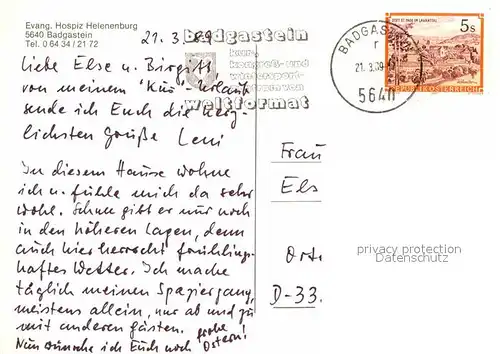 Evang. Hospiz Helenenburg
5640 Badgastein
Tel. 0 64 34 / 21 72
21.3.89
badgastein
kur-
kongreß- und
wintersport-
zentrum von
weltformat
BADGASTEIN
r
21. 3. 89
5640
STIFT ST. PAUL IM LAVANTTAL
5 S
REPUBLIK ÖSTERREICH
Liebe Else u. Birgitt
von meinem "Kur"-Urlaub
sende ich Euch die herz-
lichsten Grüße Leni
In diesem Hause wohne
ich u. fühle mich da sehr
wohl. Schnee gibt es nur noch
in den höheren Lagen, denn
auch hier herrscht frühlings-
haftes Wetter. Ich mache
täglich meinen Spaziergang,
meistens allein, nur ab und zu
mit anderen Gästen.
Nun wünsche ich Euch noch frohe Ostern!
Frau
Els
Ort.
D-33.
privacy protection
Datenschutz